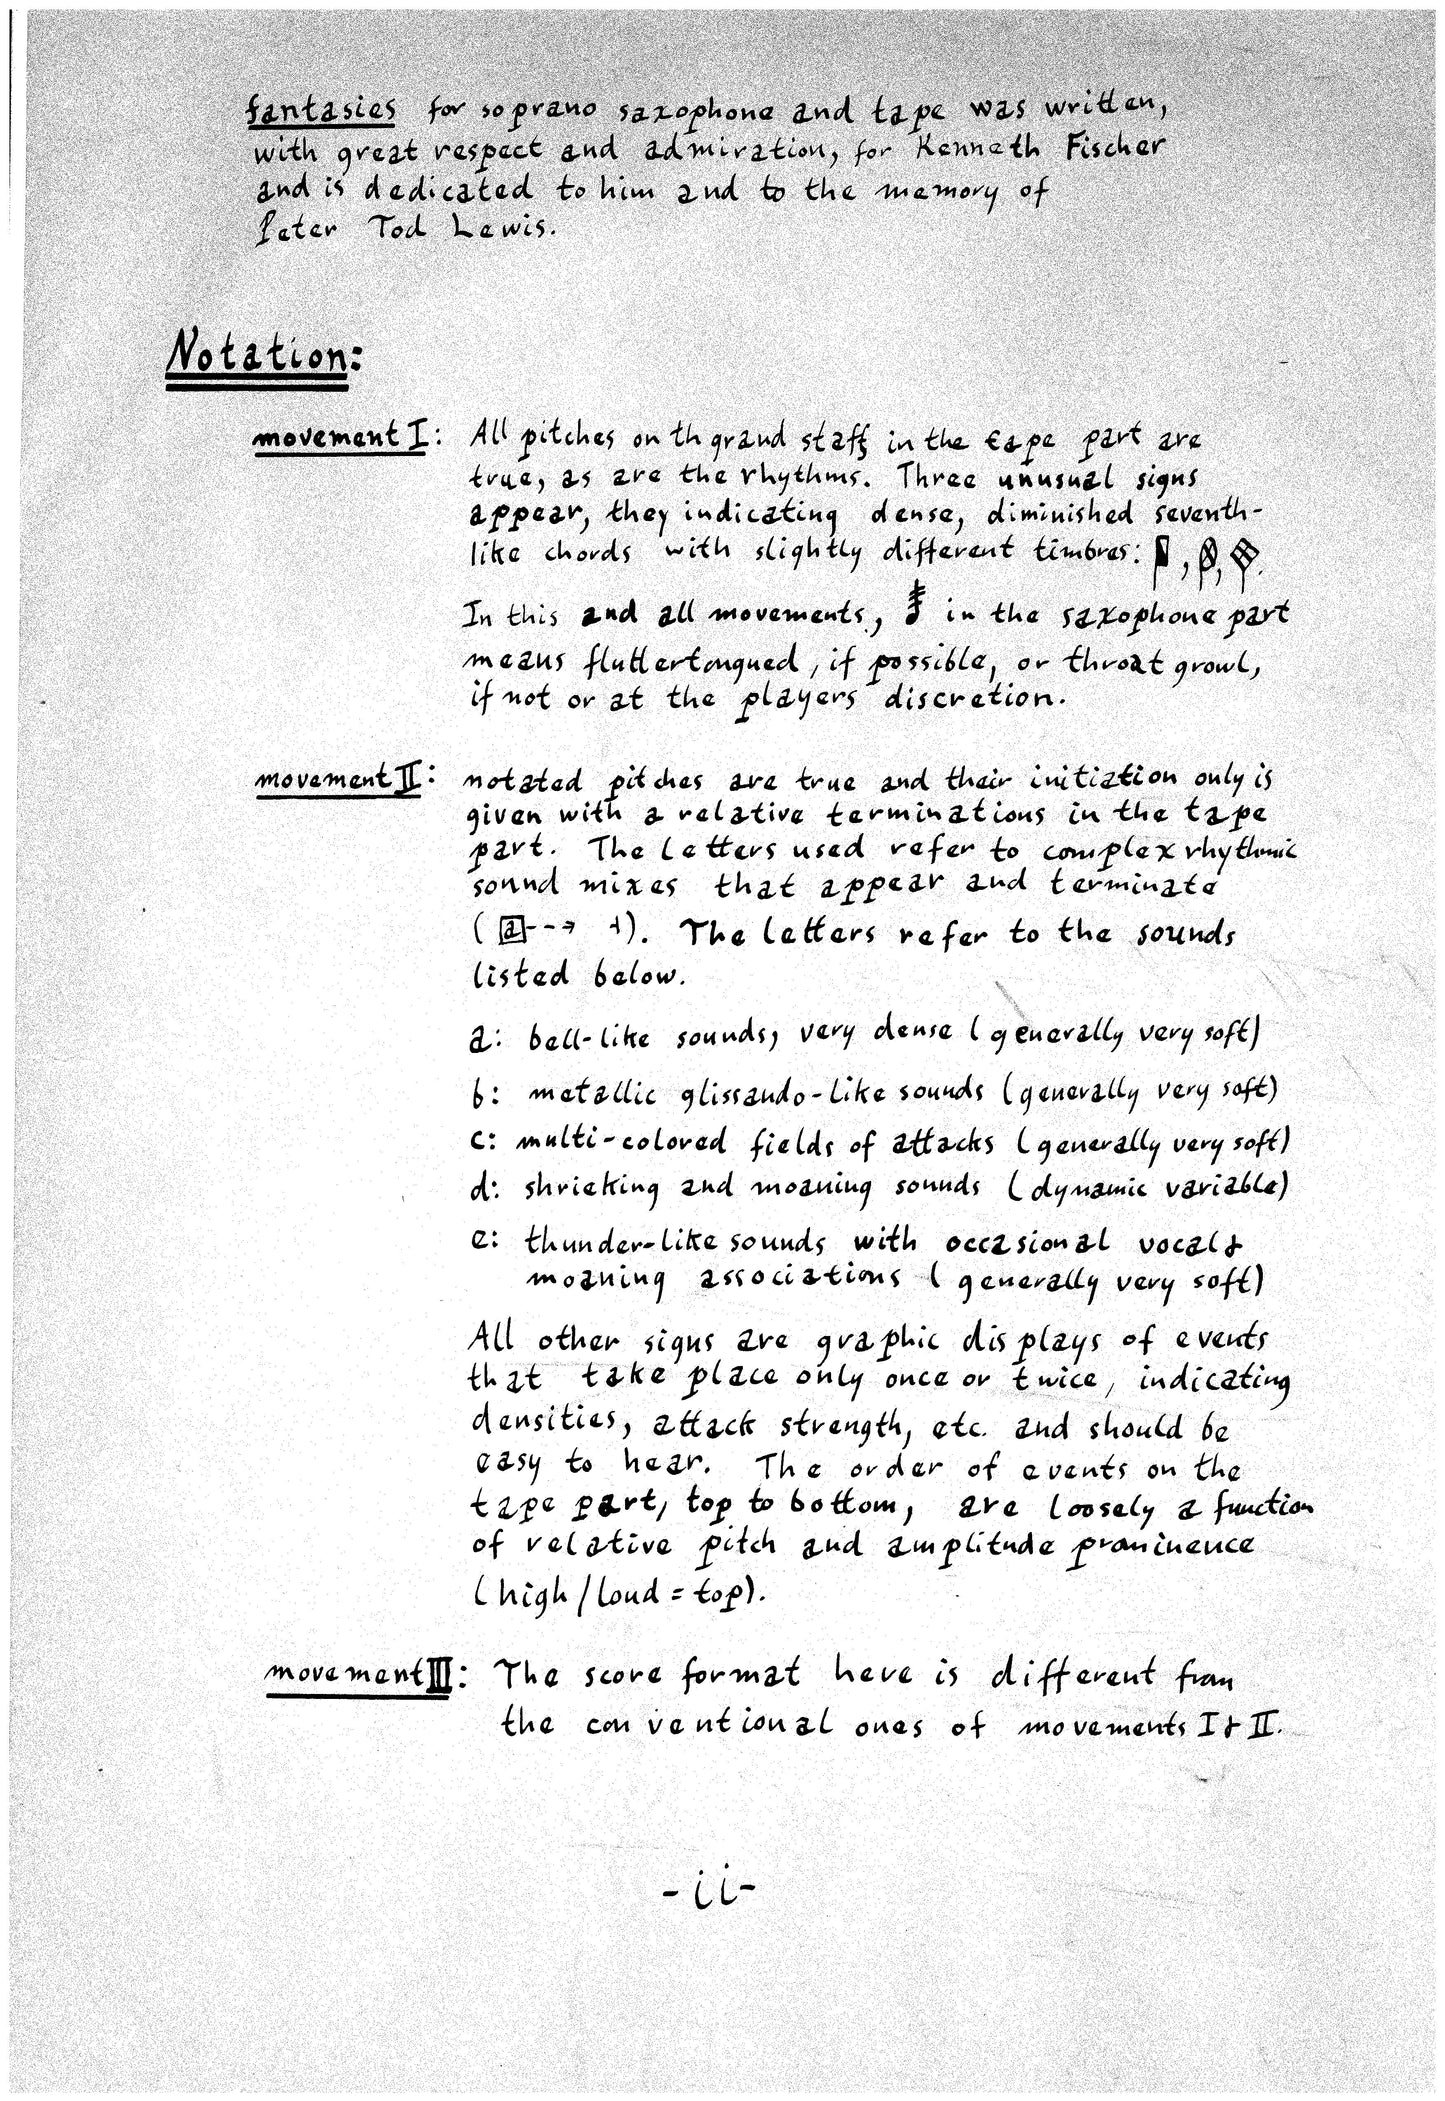 fantasies for soprano saxophone and tape was written,
with great respect and admiration, for Kenneth Fischer
and is dedicated to him and to the memory of
Peter Tod Lewis.
Notation:
movement I: All pitches on th grand staff in the tape part are
true, as are the rhythms. Three unusual signs
appear, they indicating dense, diminished seventh-
like chords with slightly different timbres: , , .
In this and all movements, in the saxophone part
means fluttertongued, if possible, or throat growl,
if not or at the players discretion.
movement II: notated pitches are true and their initiation only is
given with a relative terminations in the tape
part. The letters used refer to complex rhythmic
sound mixes that appear and terminate
( a --→ ⊣). The letters refer to the sounds
listed below.
a: bell-like sounds, very dense (generally very soft)
b: metallic glissando-like sounds (generally very soft)
c: multi-colored fields of attacks (generally very soft)
d: shrieking and moaning sounds (dynamic variable)
e: thunder-like sounds with occasional vocal &
moaning associations (generally very soft)
All other signs are graphic displays of events
that take place only once or twice, indicating
densities, attack strength, etc. and should be
easy to hear. The order of events on the
tape part, top to bottom, are loosely a function
of relative pitch and amplitude prominence
(high/loud = top).
movement III: The score format here is different from
the conventional ones of movements I & II.
-ii-